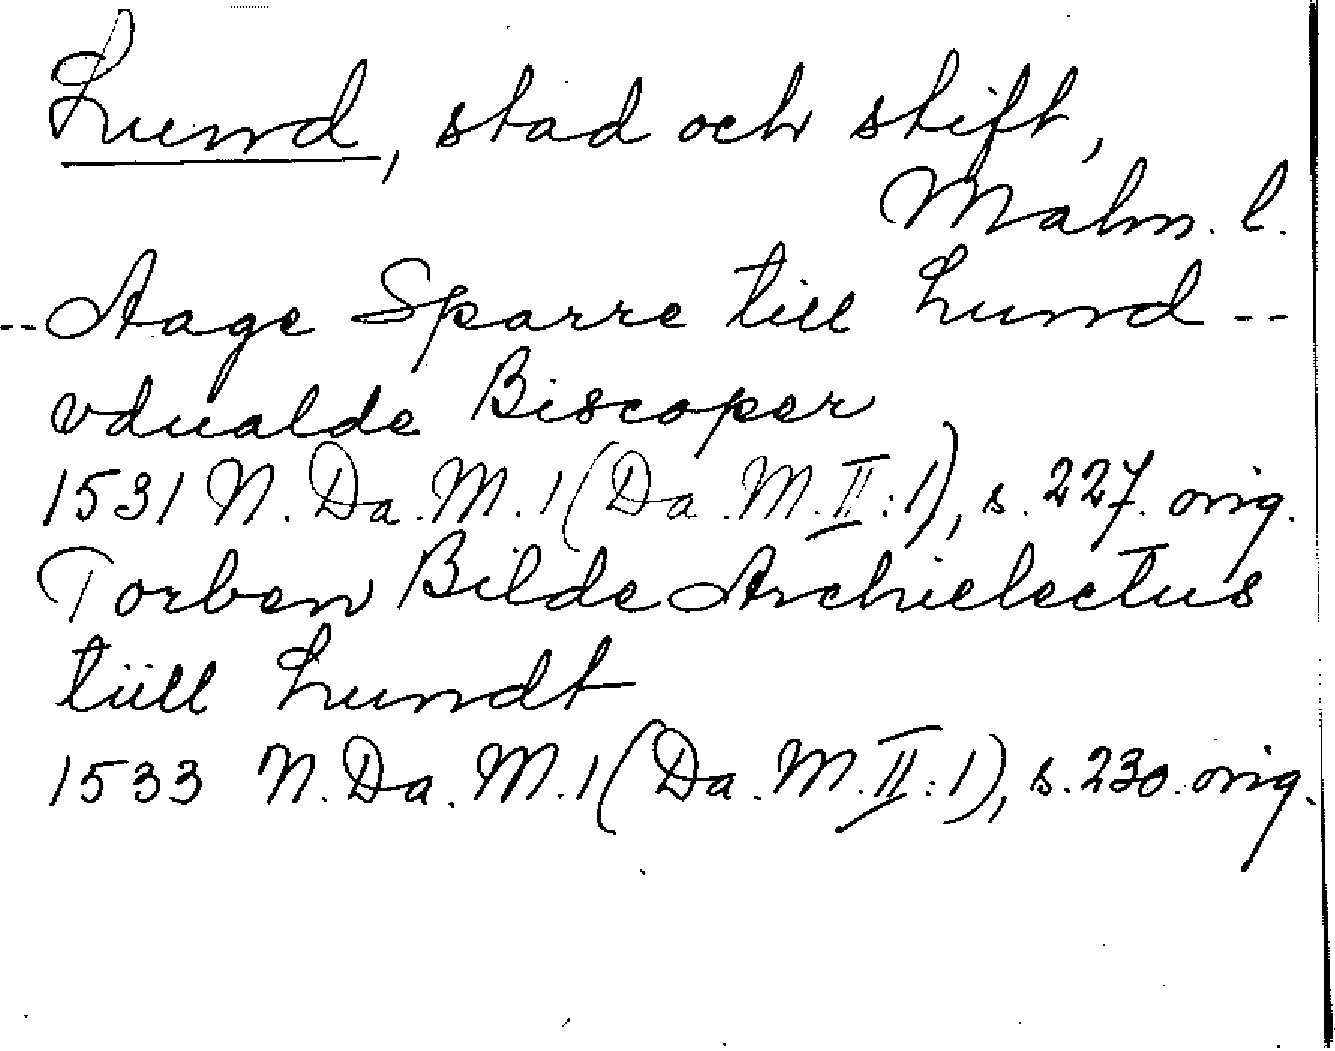 Lund, stad och stift,
Malm. l.
-- Aage Sparre till Lund --
vdualde Biscoper
1531 N. Da. M. 1 (Da. M. II:1), s. 227. orig.
Torben Bilde Archielectus
tiill Lundt
1533 N. Da. M. 1 (Da. M. II:1), s. 230. orig.